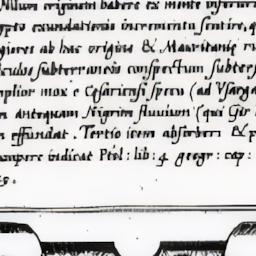 Nilum originem habere ex monte inferiori
ypto exundationis incrementu sentire, q
giores ab hac origine & Mauritanie ni
culus subterraneis conspectum subter
mplior mox e Cesariensi specu (ad Vsarga
n antequam Nigrim fluuium (qui Gir
n effundat. Tertio item absorberi & p
umpere indicat Ptol: lib: 4 geogr: cap: